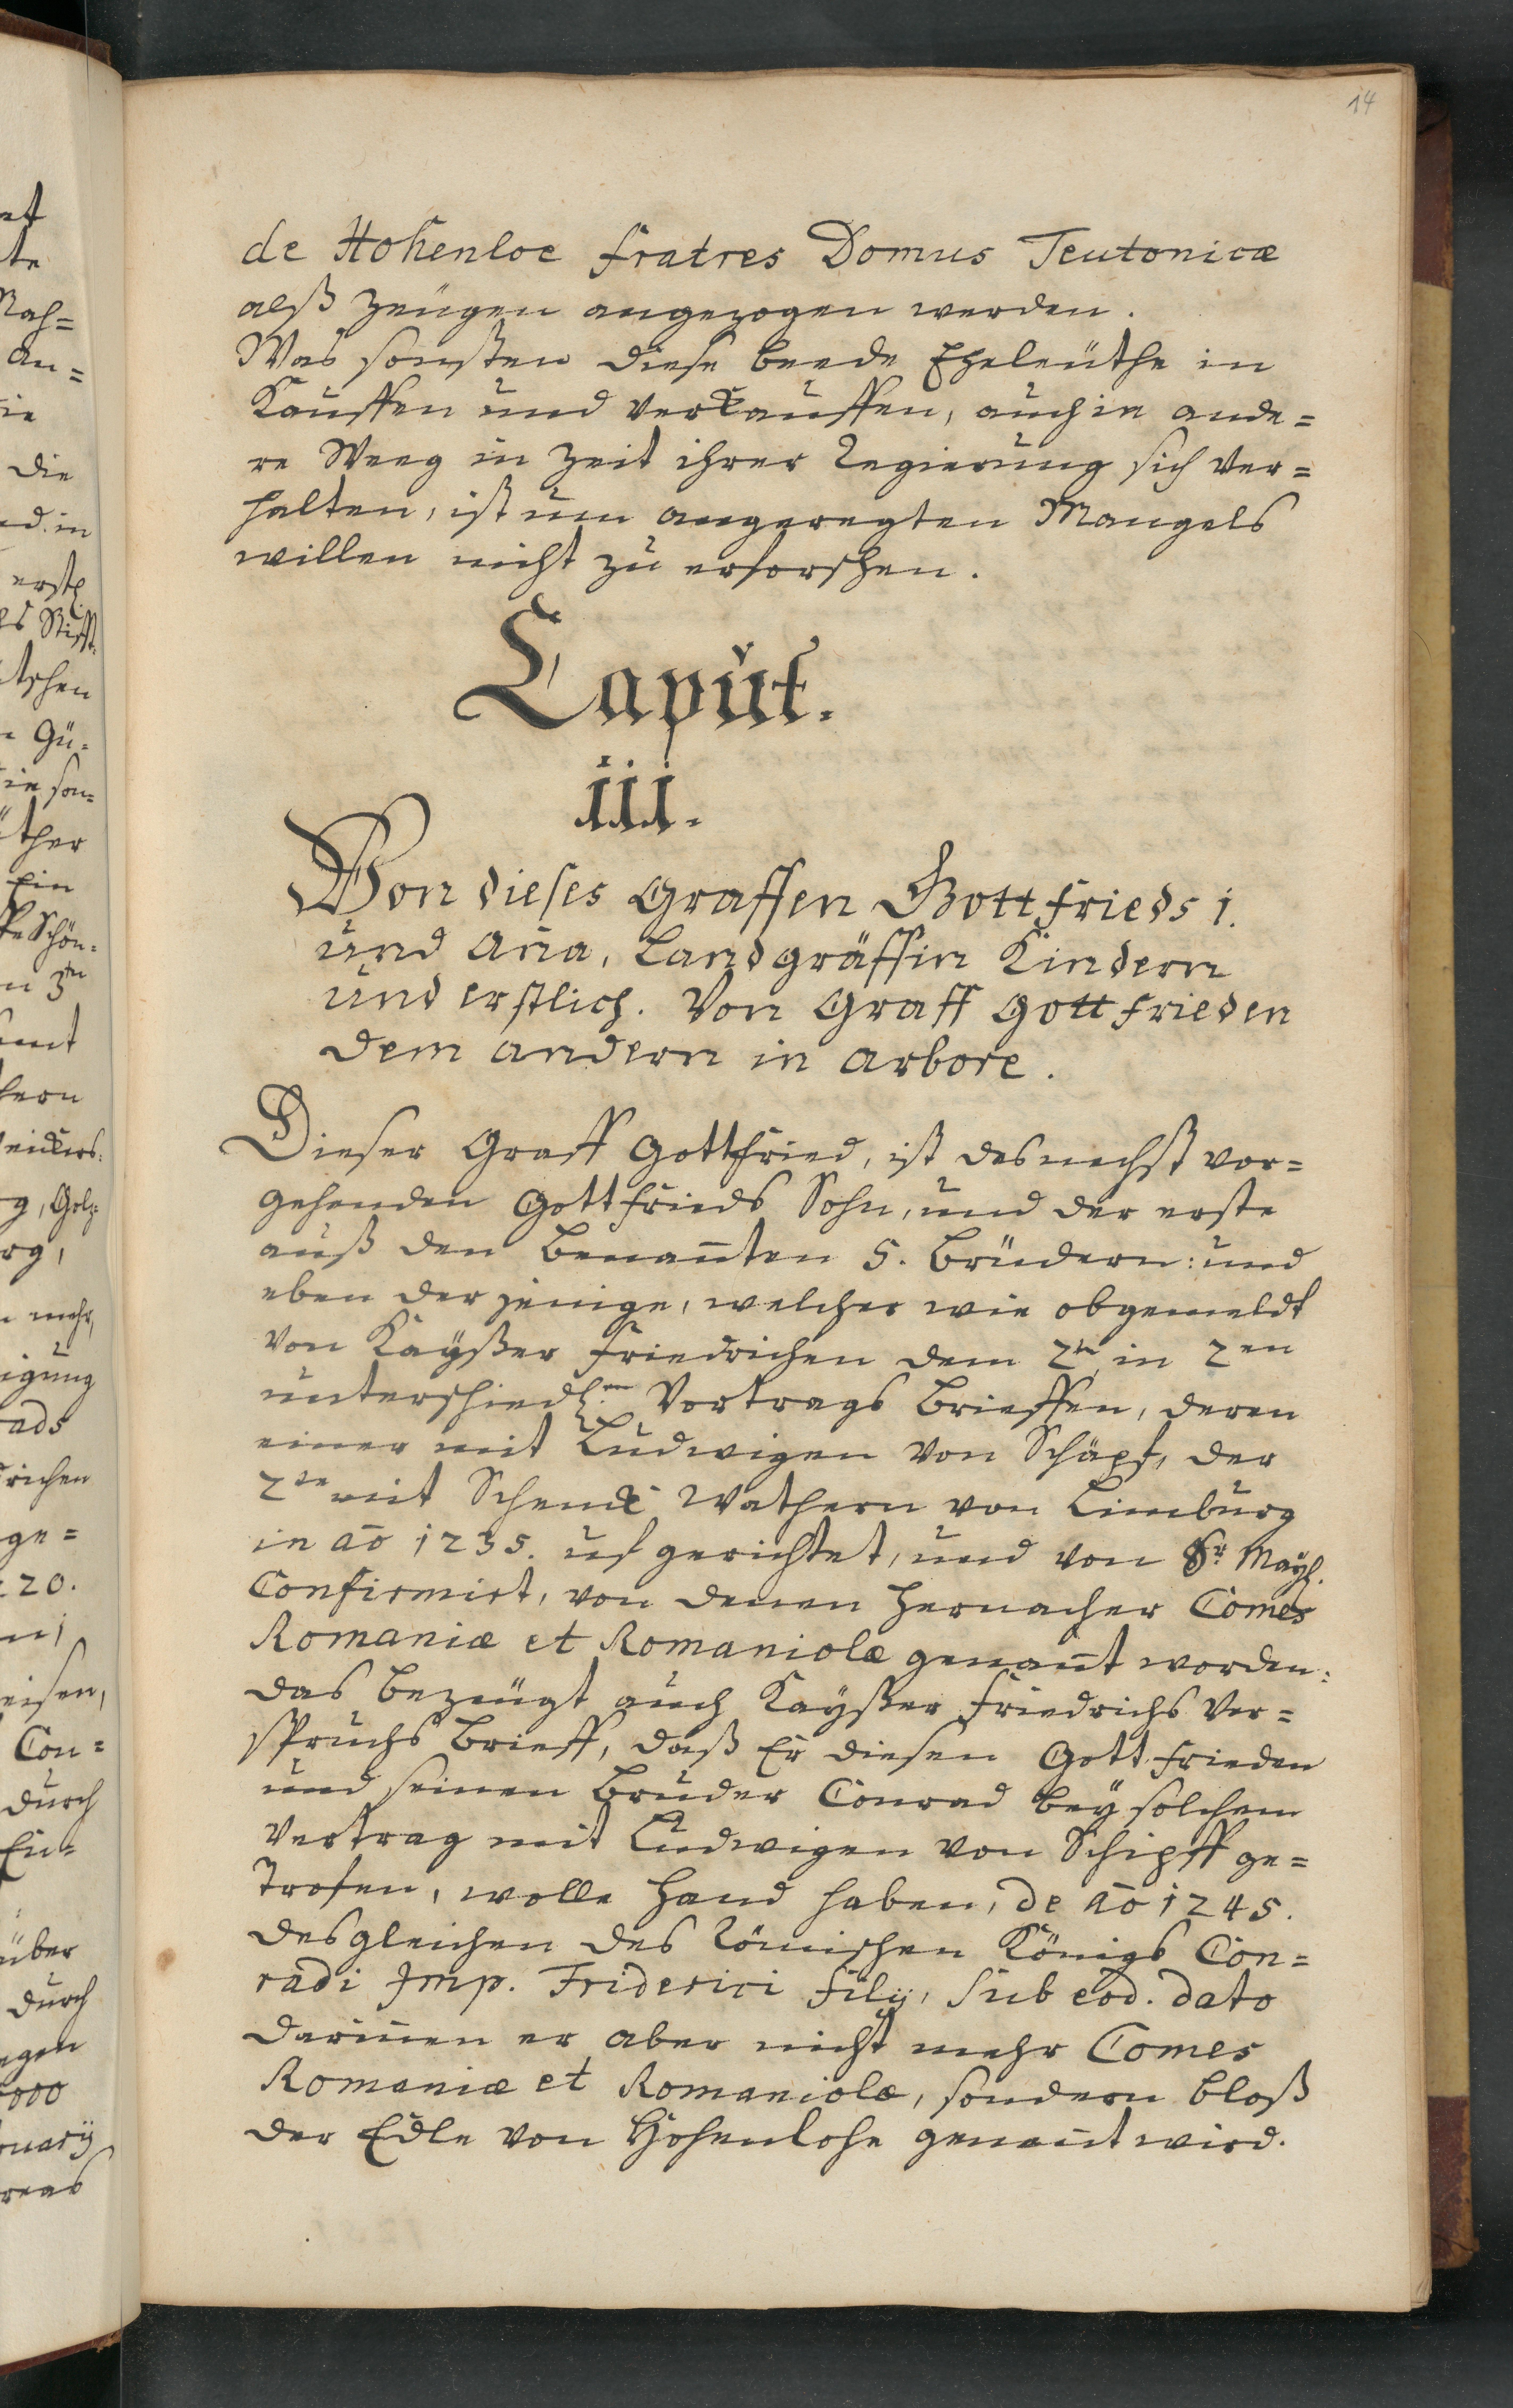 14
de Hohenloe fratres Domus Teutonicæ
alß Zeugen angezogen werden.
Was sonsten diese beede Eheleüthe in
Kauffen und verkauffen, auch in ande=
re Weeg in Zeit ihrer Regierung sich ver=
halten, ist um angeregten Mangels
willen nicht zu erforschen.
Caput.
iii.
Von dieses Graffen Gottfrieds 1.
und Aña, Landgräffin Kindern
und erstlich. Von Graff Gottfrieden
dem andern in arbore.
Dieser Graff Gottfried, ist des nechst vor=
gehenden Gottfrieds Sohn, und der erste
auß den benañten 5. Brüdern: und
eben der jenige, welcher wie obgemeldt
von Kaÿßer Friedrichen dem 2ten in 2en
unterschiedl. Vortrags Brieffen, deren
einer mit Ludwigen von Schäpf, der
2te mit Schenk Wathern von Limburg
in aõ 1235. uf gerichtet, und von Sr. Maÿ.
Confirmirt, von denen hernacher Comes
Romaniæ et Romaniolæ genañt worden:
das bezeugt auch Kaÿßer Friedrichs Ver=
spruchs Brieff, daß Er diesen Gottfrieden
und seinen Bruder Conrad beÿ solchem
Vertrag mit Ludwigen von Schipff ge=
trofen, wolle Hand haben, de Aõ 1245.
desgleichen des Römischen Königs Con=
radi Imp. Friderici filij, sub eod. dato
dariñen er aber nicht mehr Comes
Romaniæ et Romaniolæ, sondern bloß
der Edle von Hohenlohe genañt wird.